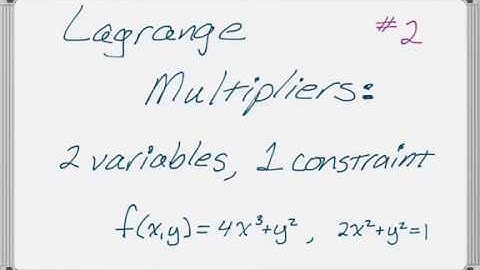 Lagrange #2
Multipliers:
2 variables, 1 constraint
f(x,y) = 4x³+y² , 2x²+y²=1